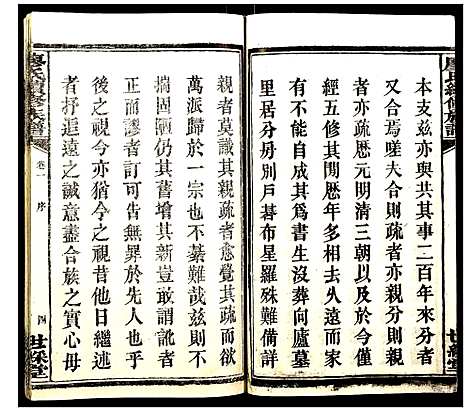 廖氏續修族譜
本支茲亦與共其事二百年來分者
又合焉嗟夫合則疏者亦親分則親
者亦疏歷元明清三朝以及于我
經五修其間歷年多而久遠而家
有不能自成其為書生有葬向廬墓
里居分房別戶碁布星羅殊難備而
世綵堂
親者莫識其親疏者愈覺其疏而欲
萬派歸於一宗也不綦難哉茲則不
揣固陋仍其舊增其新豈敢謂訛者
正而謬者可無罪於先人也乎
後之視今亦猶今之視昔他日繼述
者抒追遠之誠意盡合族之實心毋
廖氏續修族譜
卷一
序
四
世綵堂